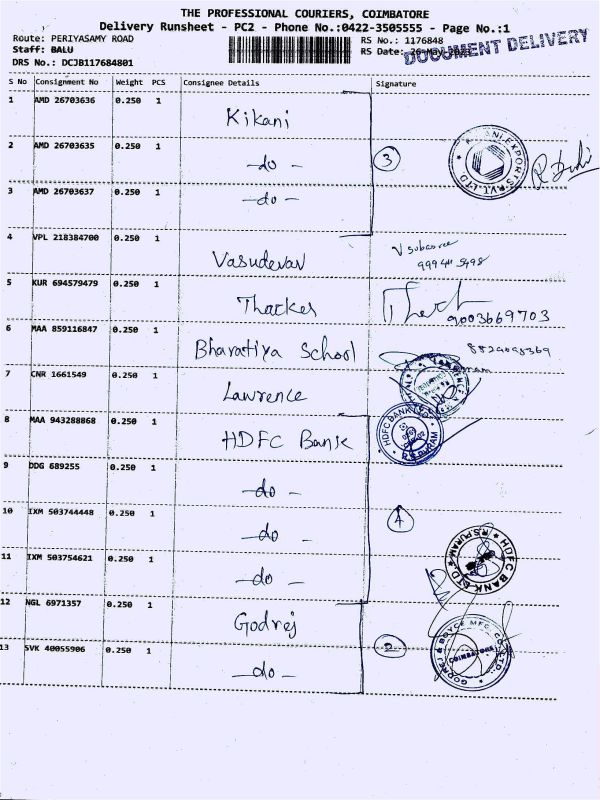 THE PROFESSIONAL COURIERS, COIMBATORE
Delivery Runsheet - PC2 - Phone No.:0422-3505555 - Page No.:1
Route: PERIYASAMY ROAD
RS No.: 1176848
Staff: BALU
RS Date: 26-May-
DOCUMENT DELIVERY
DRS No.: DCJB117684801
S No Consignment No Weight PCS Consignee Details Signature
1 AMD 26703636 0.250 1 Kikani
2 AMD 26703635 0.250 1 -do- 3
3 AMD 26703637 0.250 1 -do-
4 VPL 218384700 0.250 1 Vasudevan
5 KUR 694579479 0.250 1 Thacker 9003669703
6 MAA 859116847 0.250 1 Bharatiya School
7 CNR 1661549 0.250 1 Lawrence
8 MAA 943288868 0.250 1 HDFC Bank
HDFC BANK LTD
R.S.PURAM
9 DDG 689255 0.250 1 -do-
10 IXM 503744448 0.250 1 -do- 4
11 IXM 503754621 0.250 1 -do-
HDFC BANK LTD
R.S.PURAM
12 NGL 6971357 0.250 1 Godrej
13 SVK 40055906 0.250 1 -do- 2
GODREJ & BOYCE MFG. CO. LTD.
COIMBATORE